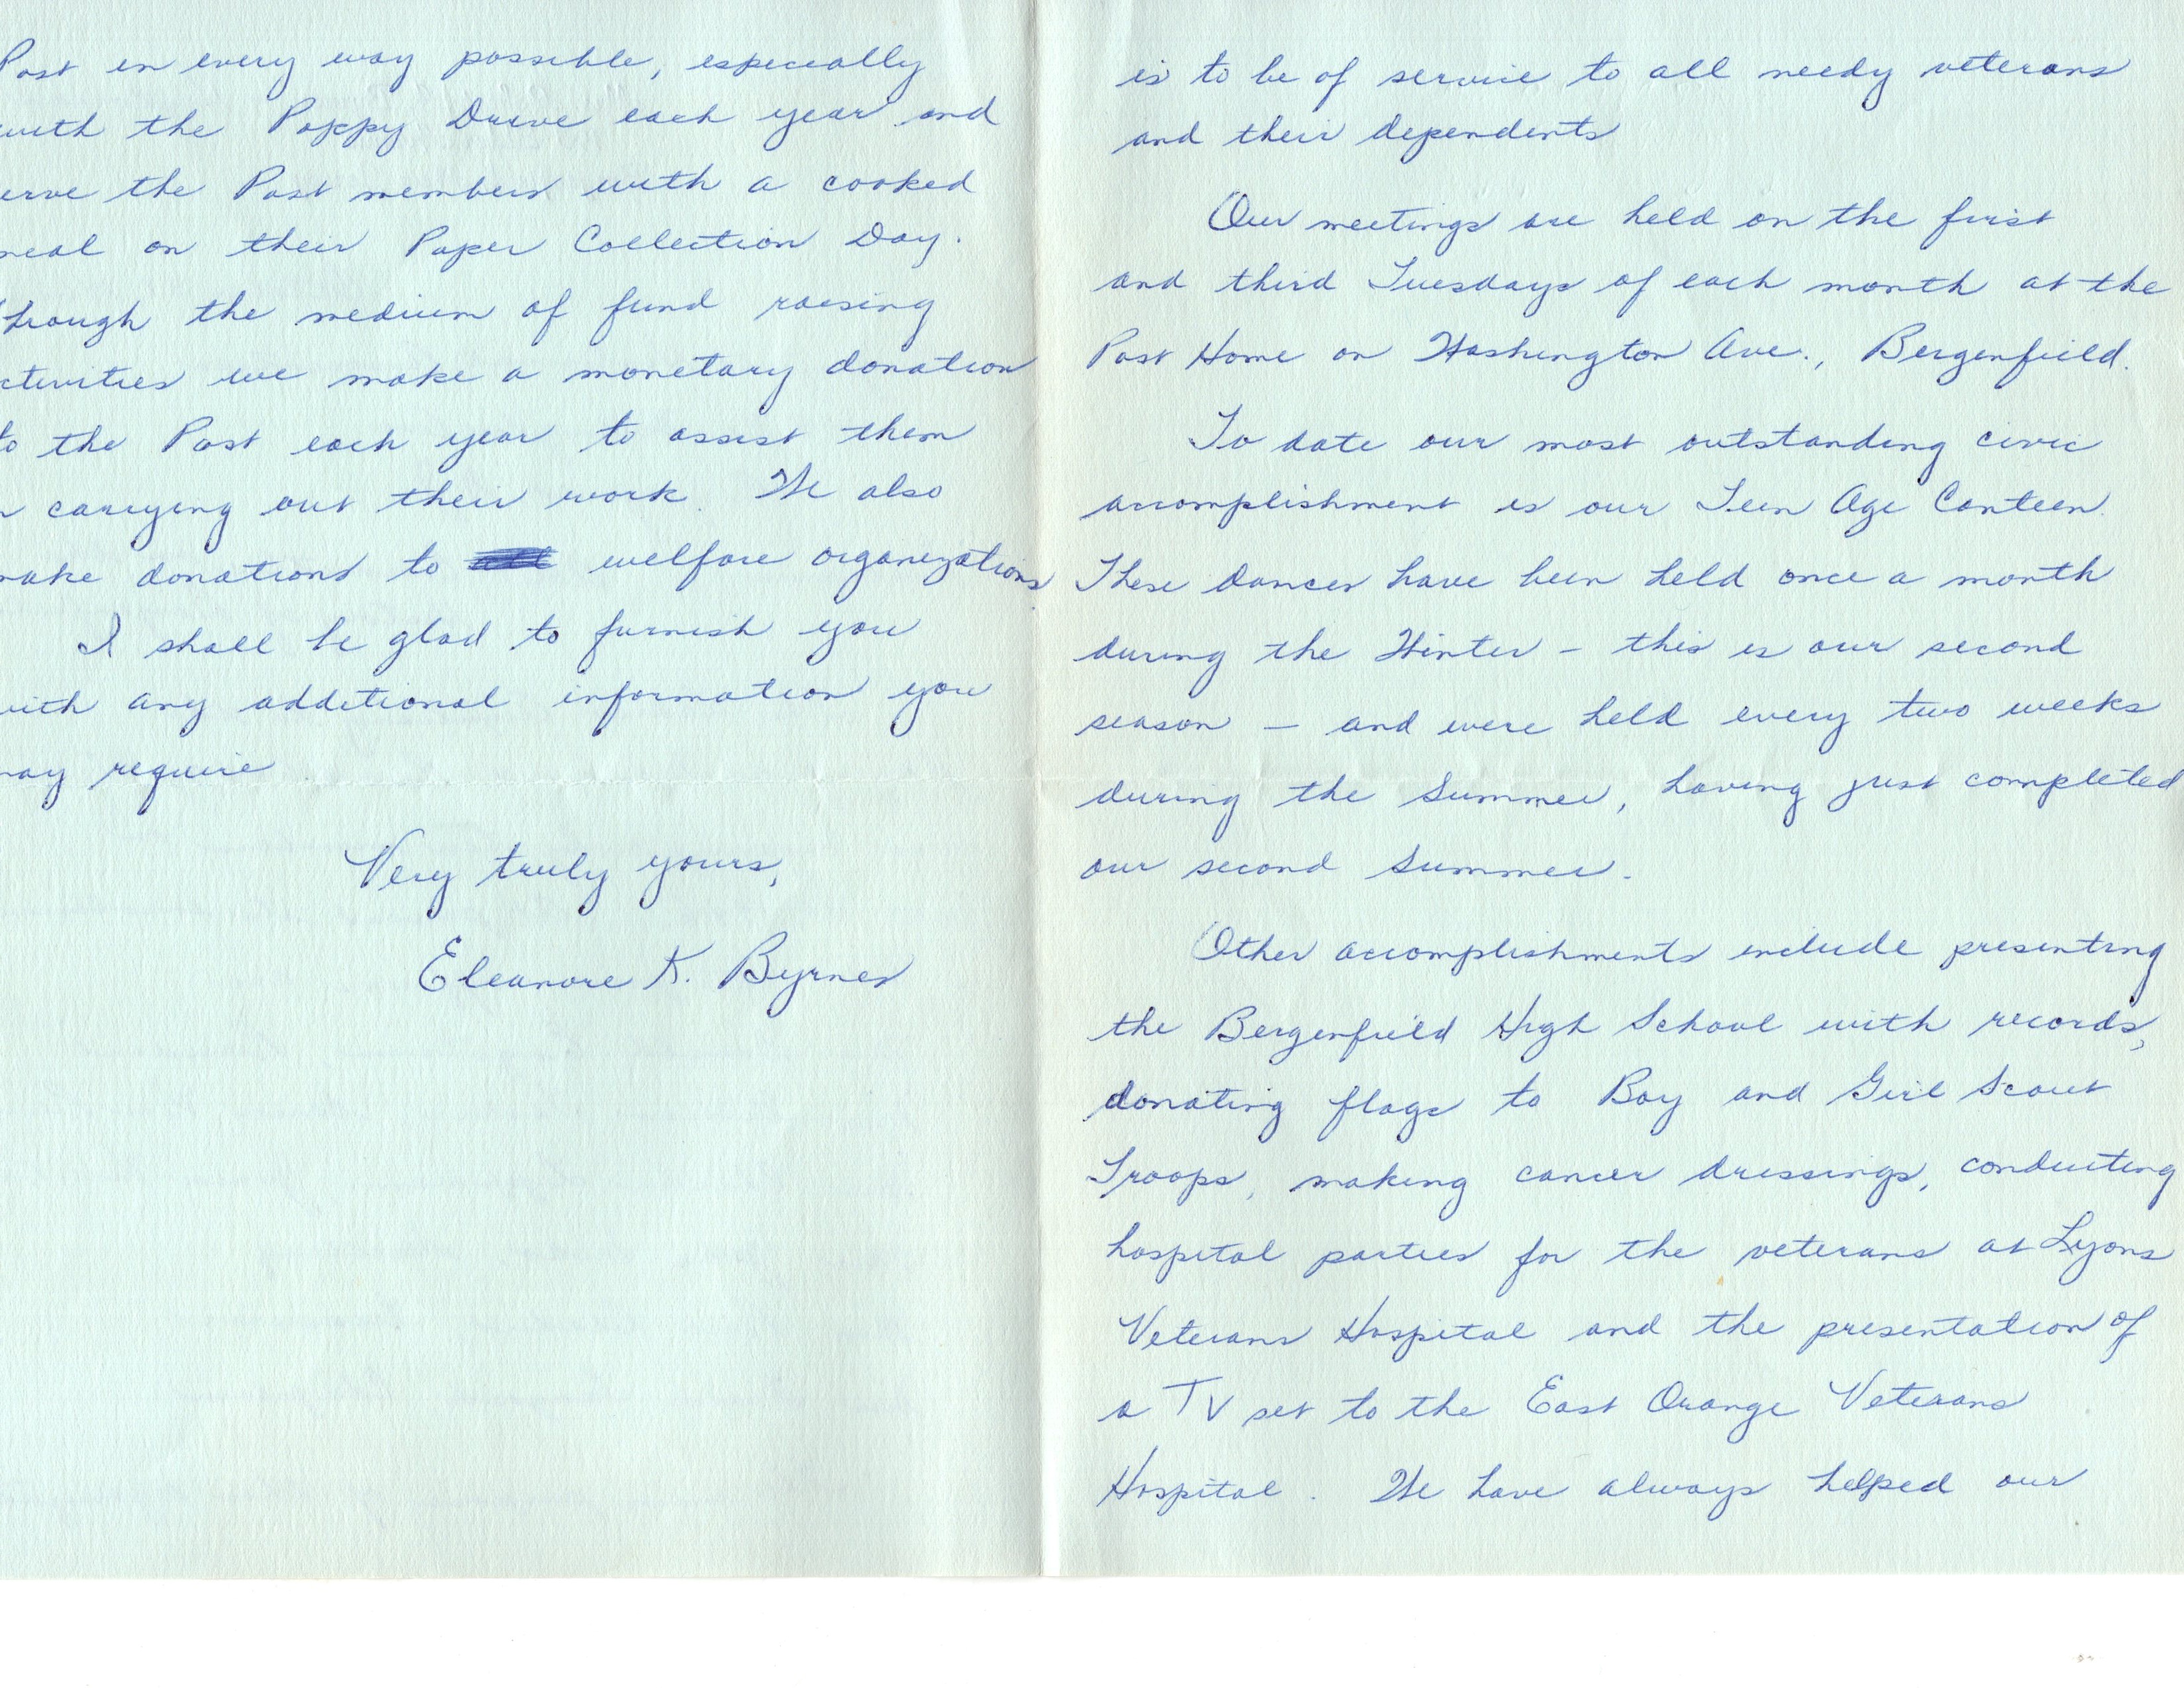 is to be of service to all needy veterans
and their dependents
Our meetings are held on the first
and third Tuesdays of each month at the
Post Home on Washington Ave., Bergenfield.
To date our most outstanding civic
accomplishment is our Teen Age Canteen.
These dances have been held once a month
during the Winter – this is our second
season – and were held every two weeks
during the Summer, having just completed
our second Summer.
Other accomplishments include presenting
the Bergenfield High School with records,
donating flags to Boy and Girl Scout
Troops, making cancer dressings, conducting
hospital parties for the veterans at Lyons
Veterans Hospital and the presentation of
a TV set to the East Orange Veterans
Hospital. We have always helped our
Post in every way possible, especially
with the Poppy Drive each year and
erve the Post members with a cooked
meal on their Paper Collection Day.
hrough the medium of fund raising
ctivities we make a monetary donation
to the Post each year to assist them
n carrying out their work. We also
ake donations to welfare organizations.
I shall be glad to furnish you
with any additional information you
may require
Very truly yours,
Eleanore K. Byrnes